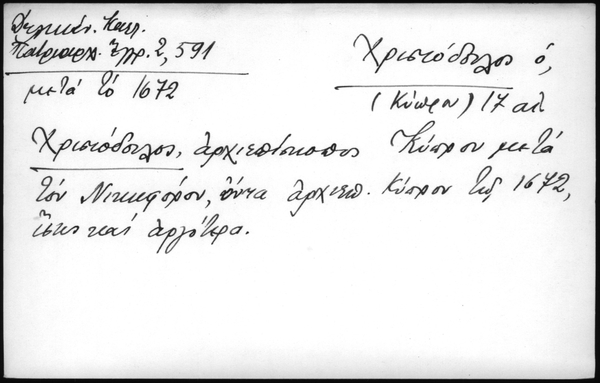 Δελικάν. Κατ.
Πατριαρχ. Ἔγγρ. 2, 591
μετά τό 1672
Χριστόδουλος ὁ,
(Κύπρου) 17 αἰ.
Χριστόδουλος, ἀρχιεπίσκοπος Κύπρου μετά
τόν Νικηφόρον, ὄντα ἀρχιεπ. Κύπρου τῷ 1672,
καί ἀργότερα.